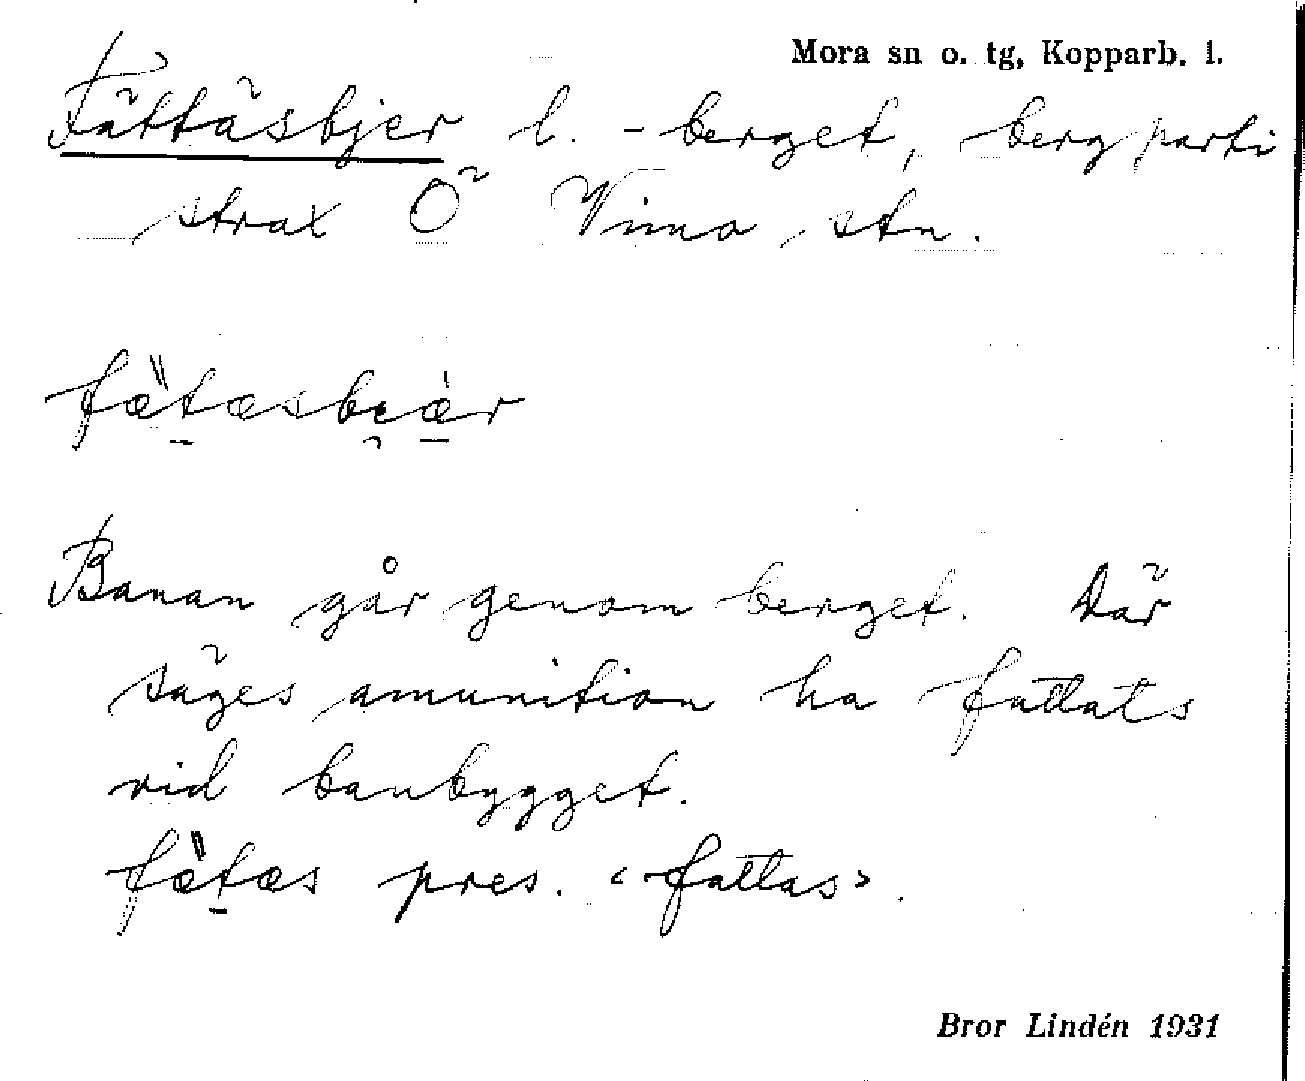 Mora sn o. tg, Kopparb. l.
Fättäsbjer l. -berget, bergparti
strax Ö Vimo stn.
fæ̎t̠æsbi̯æ̠̀r
Banan går genom berget. Där
säges amunition ha fattats
vid banbygget.
fæ̎t̠æs pres. ‹fattas›.
Bror Lindén 1931